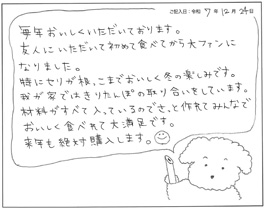 ご記入日：令和 7年12月24日
毎年おいしくいただいております。
友人にいただいて初めて食べてから大ファンに
なりました。
特にセリが根っこまでおいしく冬の楽しみです。
我が家ではきりたんぽの取り合いをしています。
材料がすべて入っているのでさっと作れてみんなで
おいしく食べれて大満足です。
来年も絶対購入します。